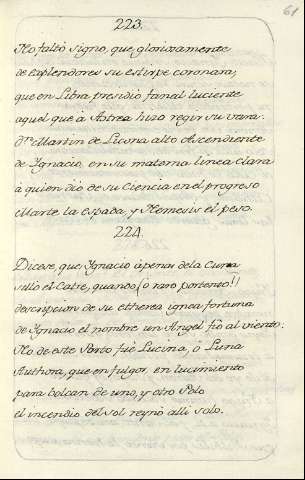 61
223.
No faltò signo, que gloriosamente
de explendores su estirpe coronara,
que en Libra presidio fanal luciente
aquel que à Astrea hizo regir su vara.
Dn. Martin de Licona alto Ascendiente
de Ygnacio, en su materna linea clara
a quien dio de su Ciencia en el progreso
Marte la Espada, y Nemesis el peso.
224.
Dicese, que Ygnacio àpenas dela Cuna
sillò el Catre, quando (o raro portento!)
descripcion de su etherea ignea fortuna
de Ygnacio el nombre un Angel fio al viento:
No de este Parto fuè Lucina, ò Luna
Authora, que en fulgor, en lucimiento
para bolcan de uno, y otro Polo
el incendio del sol reynò alli solo.